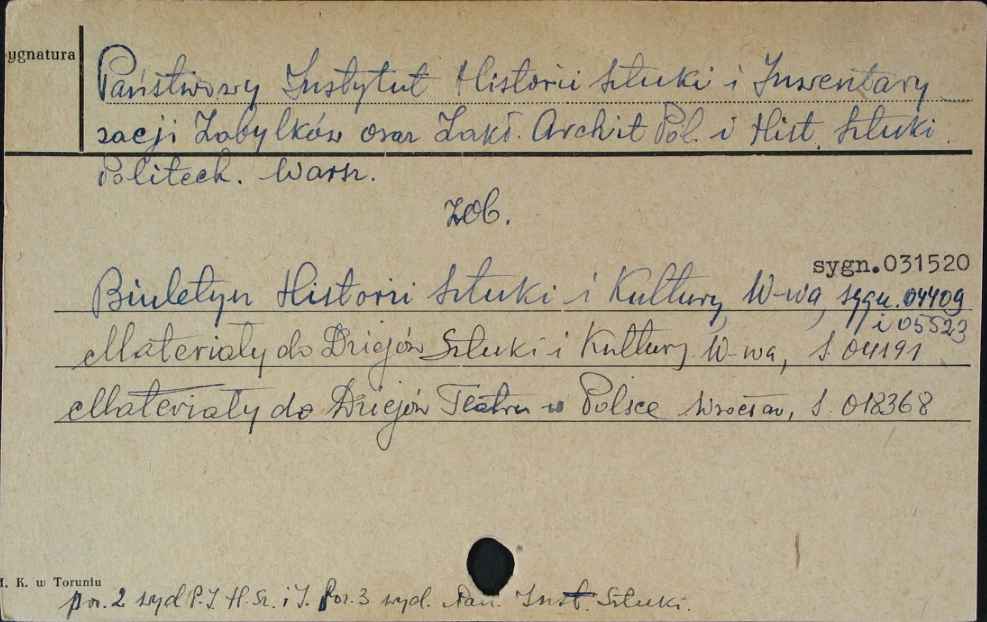 ygnatura
Państwowy Instytut Historii Sztuki i Inwentary
zacji Zabytków oraz Zakł. Archit Pol. i Hist. Sztuki
Politech. Warsz.
zob.
sygn.031520
Biuletyn Historii Sztuki i Kultury, W-wa, sygn. 04409
i 05523
Materiały do Dziejów Sztuki i Kultury W-wa, S 04191
Materiały do Dziejów Teatru w Polsce Wrocław, S. 018368
I. K. w Toruniu
por. 2 wyd P.I H.Sz. i I. Por. 3 wyd. Pań. Inst. Sztuki.